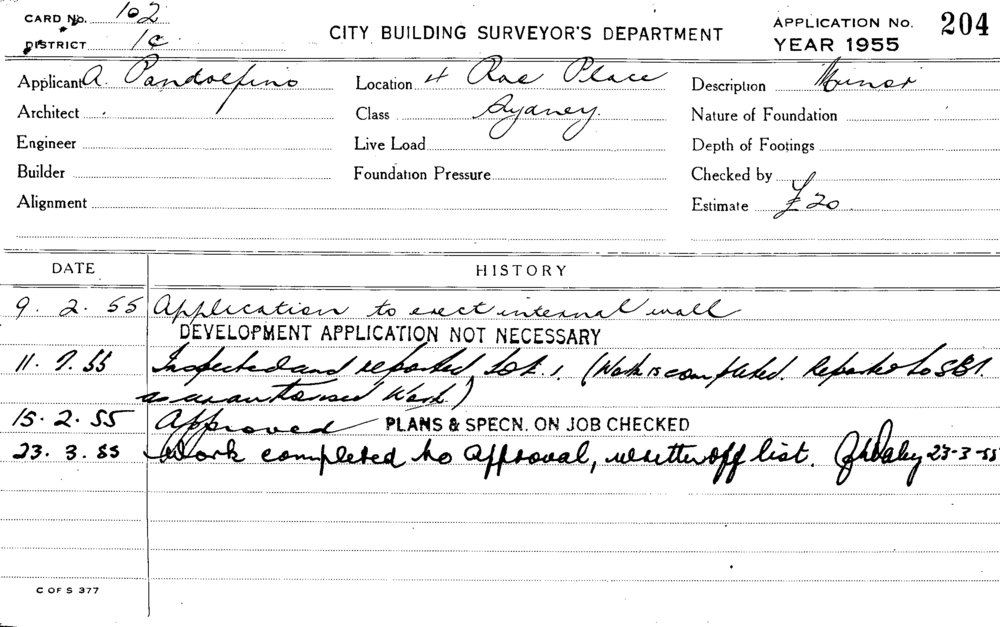 CARD No. 102
DISTRICT 1c
CITY BUILDING SURVEYOR'S DEPARTMENT
APPLICATION No. 204
YEAR 1955
Applicant A Pandolfino
Location 4 Rae Place
Description Minor
Architect
Class Sydney.
Nature of Foundation
Engineer
Live Load
Depth of Footings
Builder
Foundation Pressure
Checked by
Alignment
Estimate £20
DATE HISTORY
9. 2. 55 Application to erect internal wall
DEVELOPMENT APPLICATION NOT NECESSARY
11. 2. 55 Inspected and reported (Work is completed. Reported to SBI.
as unauthorised Work)
15. 2. 55 Approved PLANS & SPECN. ON JOB CHECKED
23. 3. 55 Work completed to approval, written off list. 23-3-55
C OF S 377